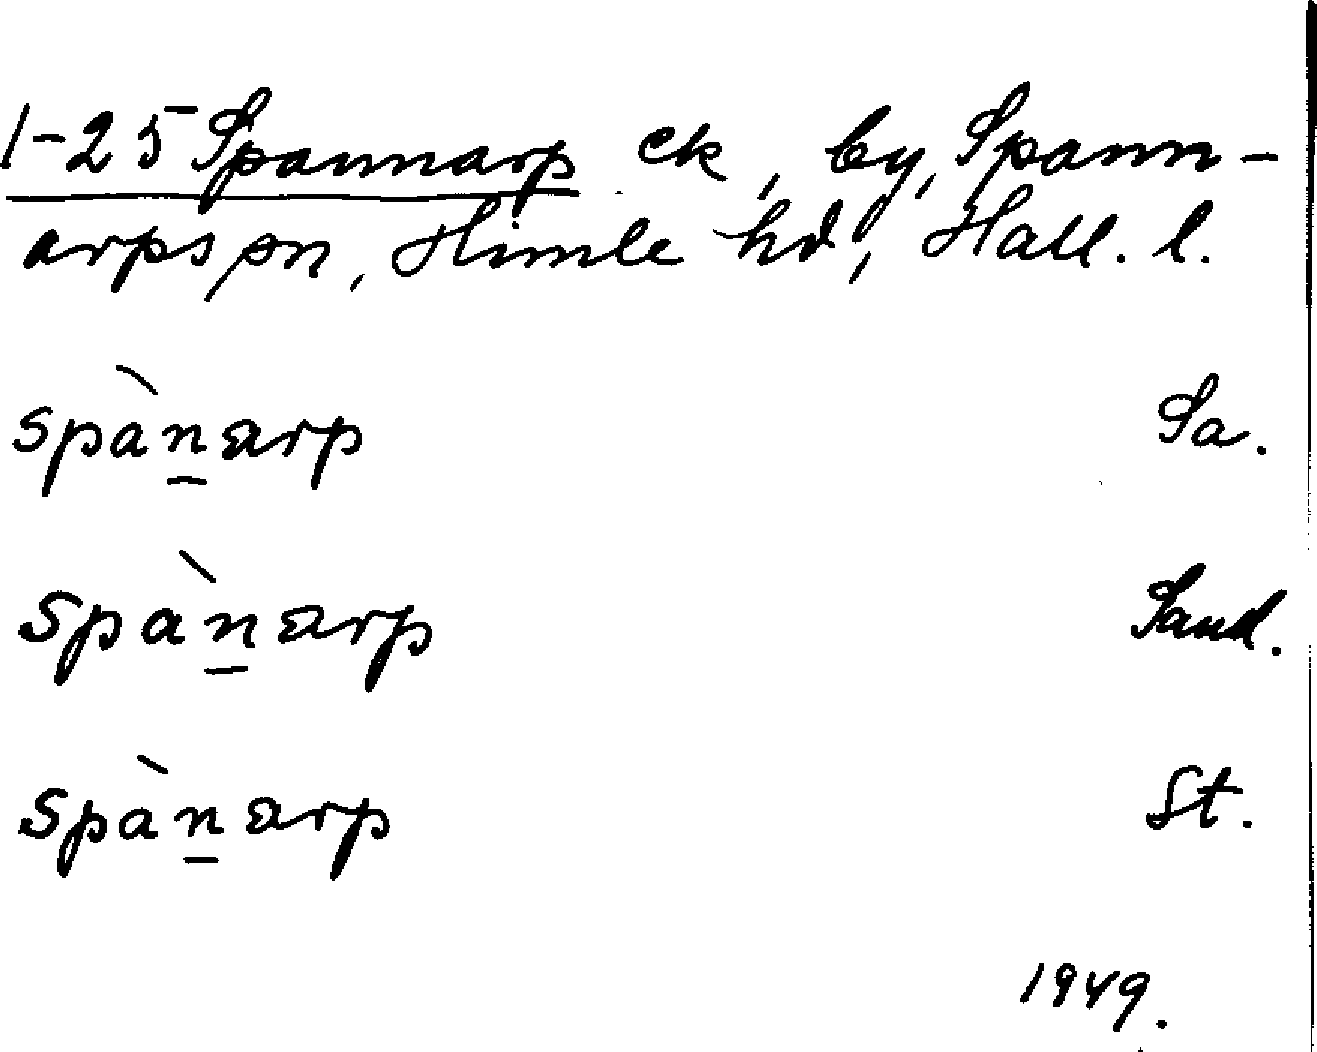 1-25 Spannarp ek, by, Spann-
arps sn, Himle hd, Hall. l.
spàn̲arp Sa.
spàn̲arp Sand.
spàn̲arp St.
1949.